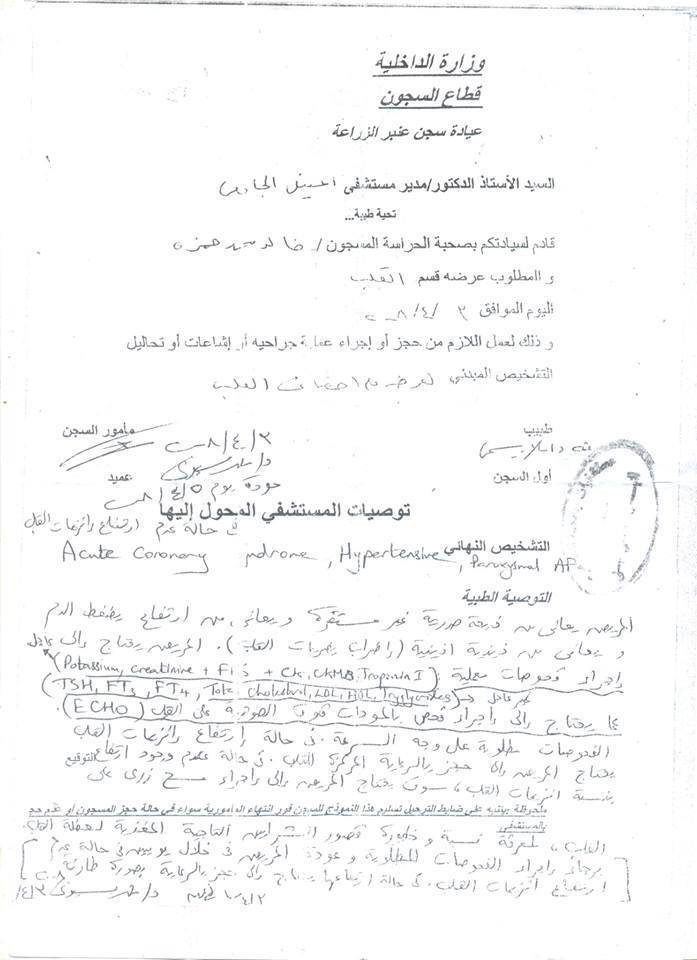 وزارة الداخلية
قطاع السجون
عيادة سجن عنبر الزراعة
السيد الأستاذ الدكتور/مدير مستشفى الجامعى
تحية طيبة...
قادم لسيادتكم بصحبة الحراسة المسجون / حمزه
و المطلوب عرضه قسم القلب
اليوم الموافق ٣ /٤/ ٢٠٠٨
و ذلك لعمل اللازم من حجز أو إجراء عملية جراحيه أو إشاعات أو تحاليل
التشخيص المبدئي القلب
طبيب
مأمور السجن
٣/٤/٢٠٠٨
أول السجن
عميد
عودة يوم ٤/٥
توصيات المستشفي المحول إليها
فى حالة عدم ارتفاع إنزيمات القلب
التشخيص النهائي
Acute Coronary Syndrome, Hypertensive, Paroxysmal AF
التوصية الطبية
المريض يعانى من ذبحة صدرية غير مستقرة ويعانى من ارتفاع بضغط الدم
و يعانى من ذبذبة أذينية (إضطراب بضربات القلب). المريض يحتاج إلى
عاجل
إجراء فحوصات معملية (Potassium, creatinine + + CK, CKMB, Troponin I)
(TSH, FT3, FT4, Total Cholesterol, LDL, HDL, Triglycerides) غير عاجل
كما يحتاج إلى إجراء فحص بالموجات فوق الصوتية على القلب (ECHO)
الفحوصات مطلوبة على وجه السرعة. فى حالة إرتفاع إنزيمات القلب
يحتاج المريض إلى حجز بالرعاية المركزة للقلب. فى حالة عدم وجود ارتفاع
التوقيع
بنسبة انزيمات القلب، سوف يحتاج المريض إلى إجراء مسح ذرى على
ملحوظة ينبه على ضابط الترحيل تسليم هذا النموذج للسجن فور انتهاء المأمورية سواء في حالة حجز المسجون أو عدم حجزه
بالمستشفى
القلب، لمعرفة نسبة و خطورة قصور الشرايين التاجية المغذية لعضلة القلب.
برجاء إجراء الفحوصات المطلوبة و عودة المريض فى خلال يومين فى حالة عدم
ارتفاع أنزيمات القلب. فى حالة ارتفاعها يحتاج إلى حجز بالرعاية بصورة طارئة